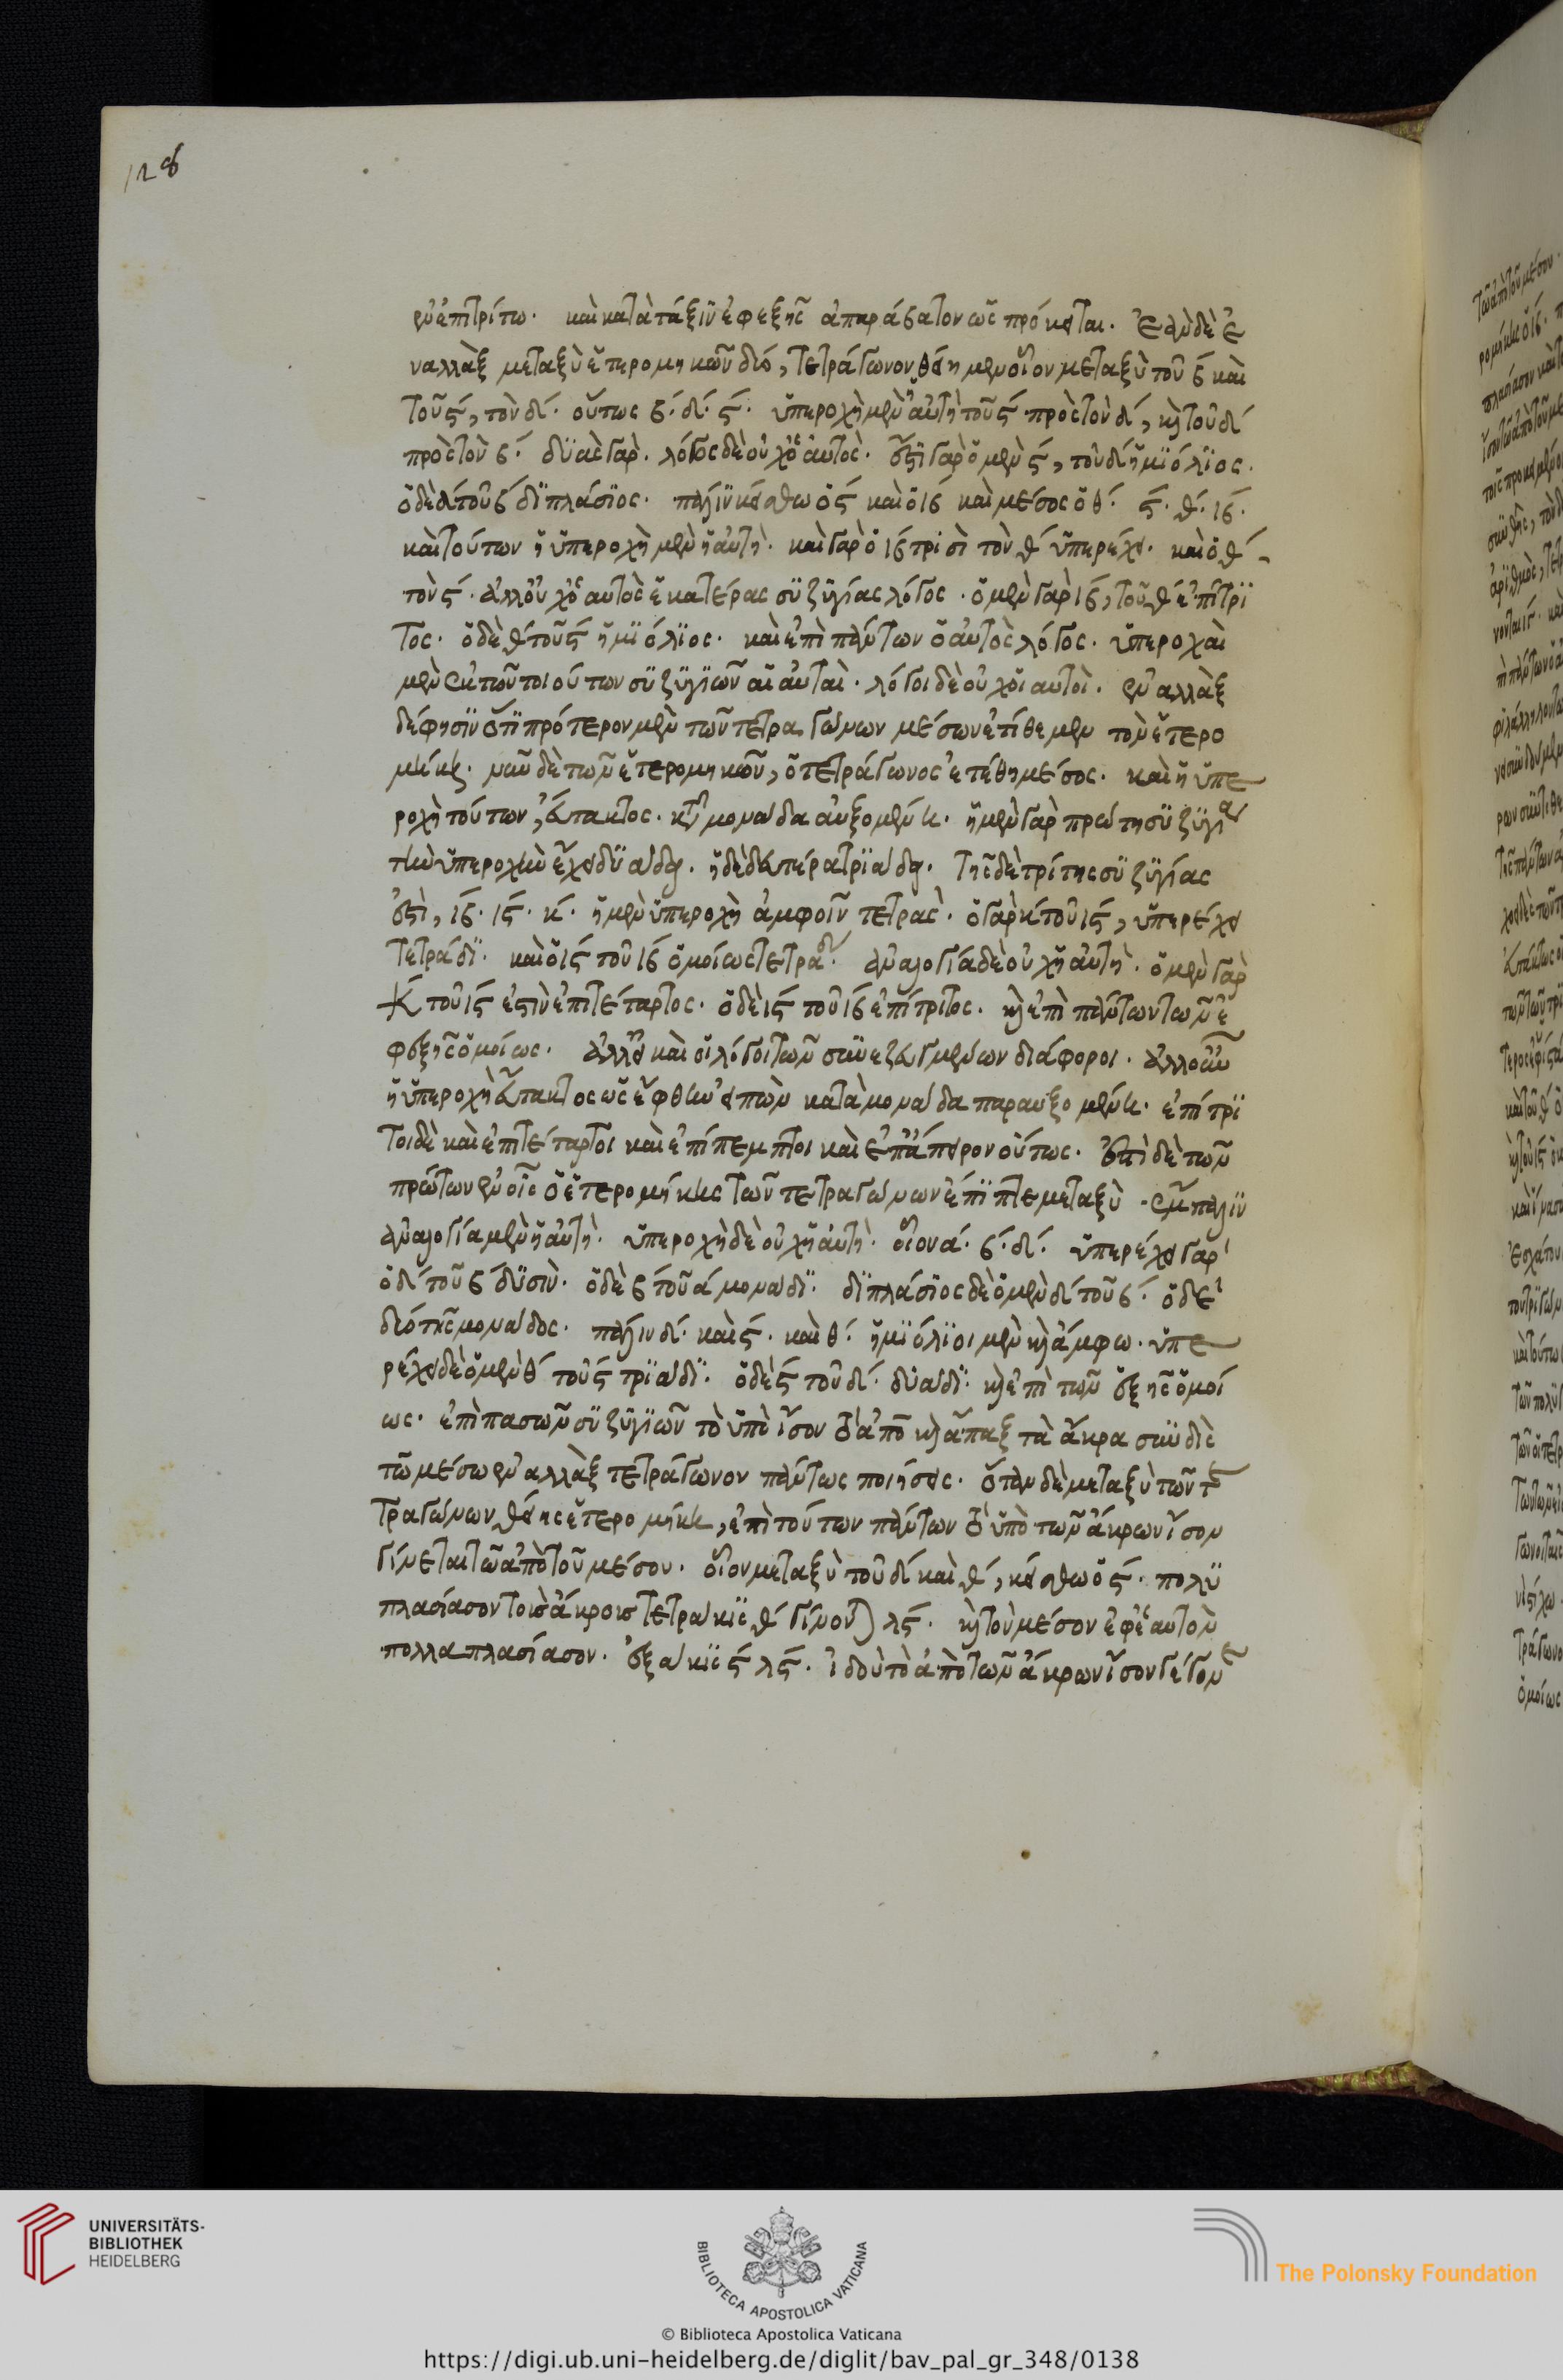 128
ἐν ἐπιτρίτω. καὶ κατὰ τάξιν ἐφεξῆς ἀπαράβατον ὡς πρόκειται. ἐὰν δὲ ἐ
ναλλὰξ μεταξὺ ἑτερομηκῶν δύο, τετράγωνον θείημεν οἷον μεταξὺ τοῦ β καὶ
τοῦ ς, τὸν δ. οὕτως β. δ. ς. ὑπεροχὴ μὲν ἡ αὐτὴ τοῦ ς πρὸς τὸν δ, καὶ τοῦ δ
πρὸς τὸν β. δυὰς γάρ. λόγος δὲ οὐχ ὁ αὐτός. ἔστι γὰρ ὁ μὲν ς, τοῦ δ ἡμιόλιος.
ὁ δὲ δ τοῦ β διπλάσιος. πάλιν κείσθω ὁ ς καὶ ὁ ιβ καὶ μέσος ὁ θ. ς. θ. ιβ.
καὶ τούτων ἡ ὑπεροχὴ μὲν ἡ αὐτή. καὶ γὰρ ὁ ιβ τρισὶ τὸν θ ὑπερέχει. καὶ ὁ θ
τὸν ς. ἀλλ' οὐχ ὁ αὐτὸς ἑκατέρας συζυγίας λόγος. ὁ μὲν γὰρ ιβ, τοῦ θ ἐπίτρι
τος. ὁ δὲ θ τοῦ ς ἡμιόλιος. καὶ ἐπὶ πάντων ὁ αὐτὸς λόγος. ὑπεροχαὶ
μὲν ἐκ τῶν τοιούτων συζυγιῶν αἱ αὐταί. λόγοι δὲ οὐχ οἱ αὐτοί. ἐναλλὰξ
δέ φησιν ὅτι πρότερον μὲν τῶν τετραγώνων μέσων ἐτίθεμεν τὸν ἑτερο
μήκη. νῦν δὲ τῶν ἑτερομηκῶν, ὁ τετράγωνος ἐτέθη μέσος. καὶ ἡ ὑπε
ροχὴ τούτων, εὔτακτος. κατὰ μονάδα αὐξομένη. ἡ μὲν γὰρ πρώτη συζυγία
τὴν ὑπεροχὴν ἔχει δυάδα. ἡ δὲ δευτέρα τριάδα. τῆς δὲ τρίτης συζυγίας
ἐστὶ, ιβ. ις. κ. ἡ μὲν ὑπεροχὴ ἀμφοῖν τετράς. ὁ γὰρ κ τοῦ ις, ὑπερέχει
τετράδι. καὶ ὁ ις τοῦ ιβ ὁμοίως τετράδι. ἀναλογία δὲ οὐχ ἡ αὐτή. ὁ μὲν γὰρ
κ τοῦ ις ἐστὶν ἐπιτέταρτος. ὁ δὲ ις τοῦ ιβ ἐπίτριτος. καὶ ἐπὶ πάντων τῶν ἐ
φεξῆς ὁμοίως. ἀλλὰ καὶ οἱ λόγοι τῶν συνεζευγμένων διάφοροι. ἀλλ' οὖν
ἡ ὑπεροχὴ εὔτακτος ὡς ἔφθην εἰπὼν κατὰ μονάδα παραυξομένη. ἐπίτρι
τοι δὲ καὶ ἐπιτέταρτοι καὶ ἐπίπεμπτοι καὶ ἐπ' ἄπειρον οὕτως. ἐπὶ δὲ τῶν
πρώτων ἐν οἷς ὁ ἑτερομήκης τῶν τετραγώνων ἔπιπτε μεταξὺ ἔμπαλιν
ἀναλογία μὲν ἡ αὐτή. ὑπεροχὴ δὲ οὐχ ἡ αὐτή. οἷον α. β. δ. ὑπερέχει γὰρ
ὁ δ τοῦ β δυσίν. ὁ δὲ β τοῦ α μονάδι. διπλάσιος δὲ ὁ μὲν δ τοῦ β. ὁ δὲ
δύο τῆς μονάδος. πάλιν δ. καὶ ς. καὶ θ. ἡμιόλιοι μὲν καὶ ἄμφω. ὑπε
ρέχει δὲ ὁ μὲν θ τοῦ ς τριάδι. ὁ δὲ ς τοῦ δ. δυάδι. καὶ ἐπὶ τῶν ἑξῆς ὁμοί
ως. ἐπὶ πασῶν συζυγιῶν τὸ ὑπὸ ἴσον τῷ ἀπὸ καὶ ἅπαξ τὰ ἄκρα σὺν δὶς
τῷ μέσῳ ἐναλλὰξ τετράγωνον πάντως ποιήσεις. ὅταν δὲ μεταξὺ τῶν τε
τραγώνων θείης ἑτερομήκη, ἐπὶ τούτων πάντων τὸ ὑπὸ τῶν ἄκρων ἴσον
γίνεται τῷ ἀπὸ τοῦ μέσου. οἷον μεταξὺ τοῦ δ καὶ θ, κείσθω ὁ ς. πολυ
πλασίασον τοῖς ἄκροις τετράκις θ γίνονται λς. καὶ τὸν μέσον ἐφ' ἑαυτὸν
πολλαπλασίασον. ἑξάκις ς λς. ἰδοὺ τὸ ἀπὸ τῶν ἄκρων ἴσον γέγονε
UNIVERSITÄTS-
BIBLIOTHEK
HEIDELBERG
BIBLIOTECA APOSTOLICA VATICANA
The Polonsky Foundation
© Biblioteca Apostolica Vaticana
https://digi.ub.uni-heidelberg.de/diglit/bav_pal_gr_348/0138